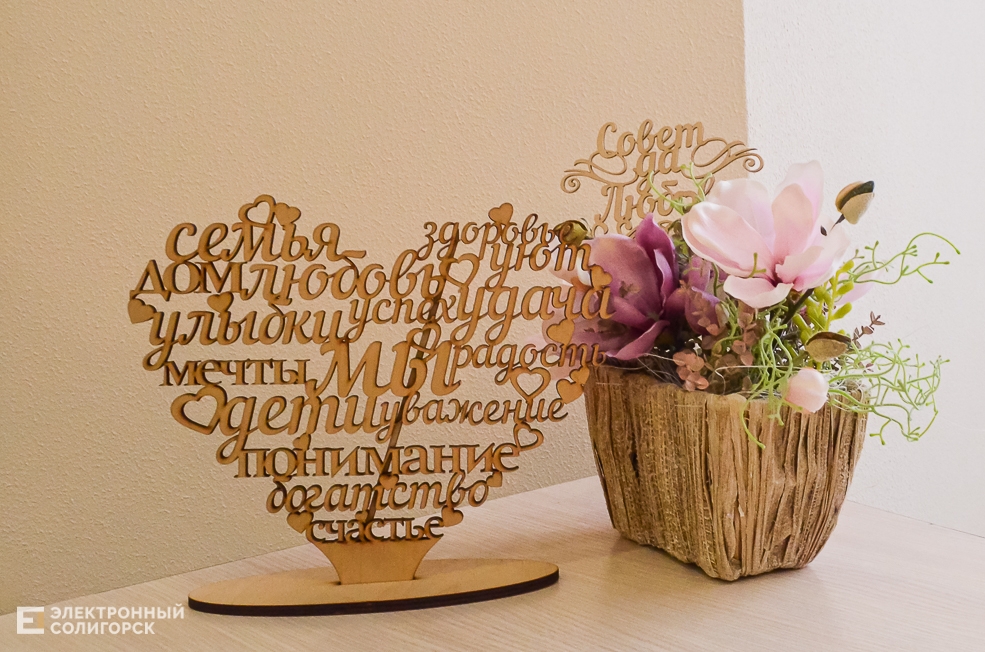 семья
здоровье
уют
дом любовь
успех удача
улыбки
радость
мечты
МЫ
дети уважение
понимание
богатство
счастье
Совет
да
Любовь
ЭЛЕКТРОННЫЙ
СОЛИГОРСК